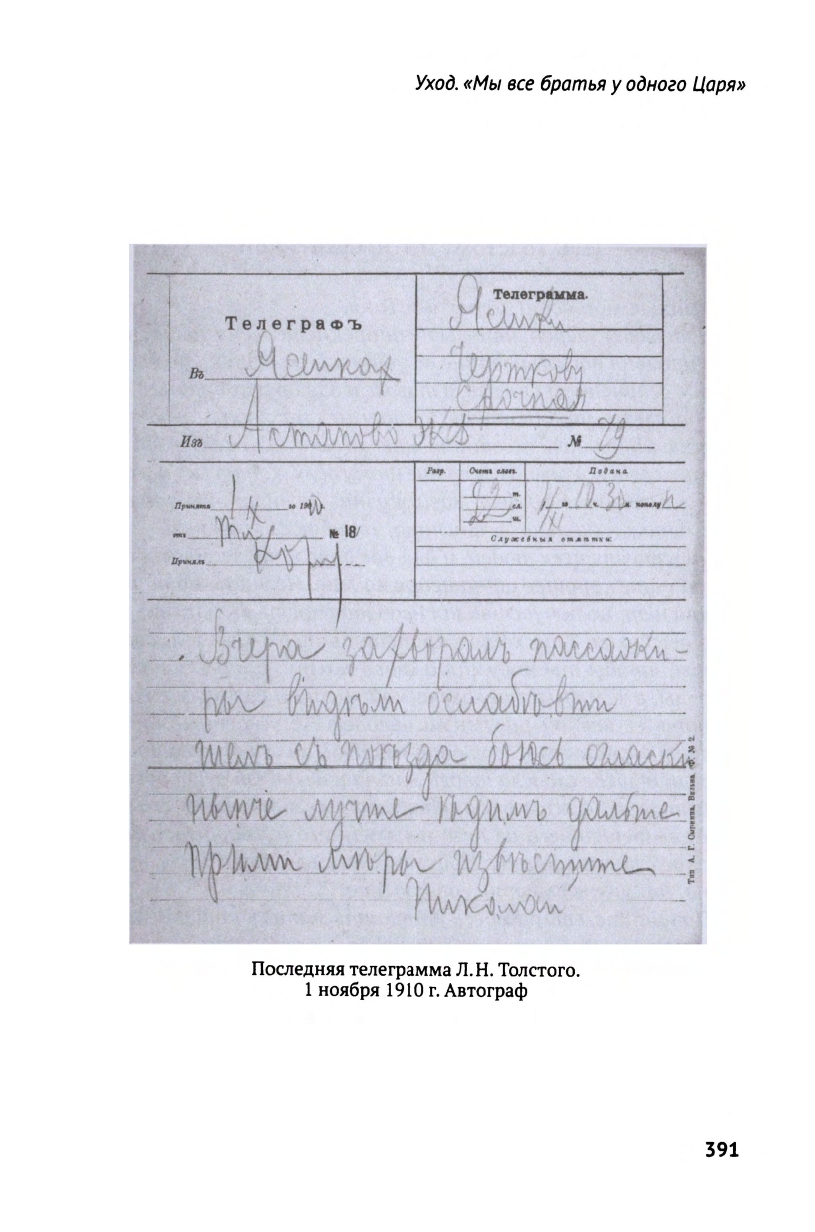 Уход. «Мы все братья у одного Царя»
Телеграфъ
Въ Ясенках
Телеграмма.
Ясенки
Черткову
срочная
Изъ Астапово ЖД № 79
Разр. Счетъ словъ. Подана
т.
сл.
ш.
го 10 ч. 30 м. пополу
Принята 1/XI го 1910 г.
отъ № 18
Принялъ
Служебныя отмѣтки:
Вчера захворалъ пассажи-
ры видѣли ослабѣвши
шелъ съ поѣзда боюсь огласки
нынче лучше едимъ дальше
прими мѣры извѣстите
Николай
Тип А. Г. Сыркина, Вильна, Ф. № 2.
Последняя телеграмма Л.Н. Толстого.
1 ноября 1910 г. Автограф
391